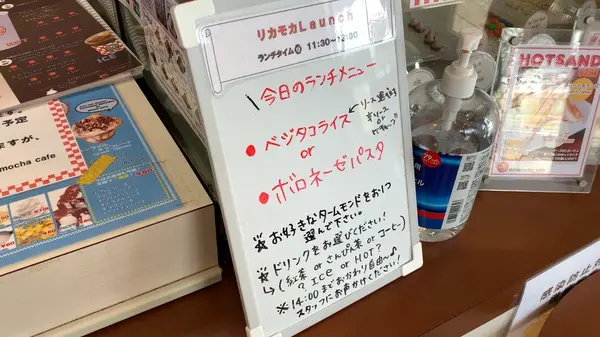 リカモカLaunch
ランチタイム 11:30~
今日のランチメニュー
・ベジタコライス
or
・ボロネーゼパスタ
お好きなタームモンドをお1つ
選んで下さい。
※ドリンクをお選びください!
↳(紅茶 or さんぴん茶 or コーヒー)
? ICE or HOT?
※14:00までおかわり自由~♪
スタッフにお声がけください!
ICE
予定
ますが、
mocha cafe
HOTSAND
感染防止